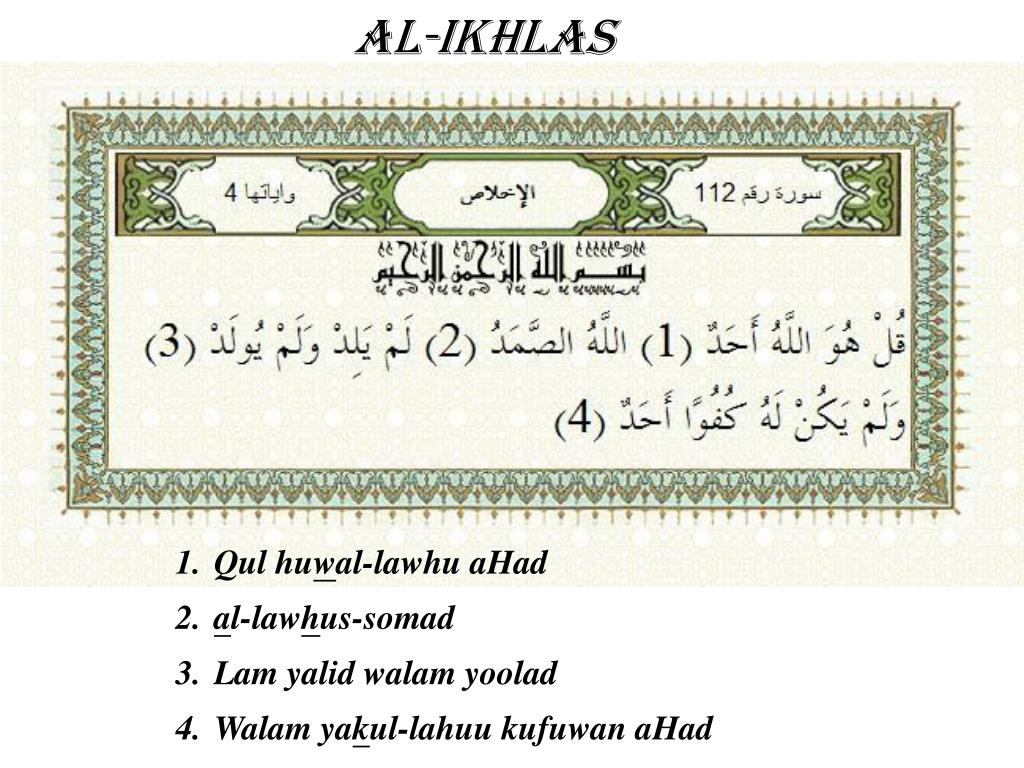 AL-IKHLAS
سورة رقم 112 الإخلاص واياتها 4
بسم الله الرحمن الرحيم
قُلْ هُوَ اللَّهُ أَحَدٌ (1) اللَّهُ الصَّمَدُ (2) لَمْ يَلِدْ وَلَمْ يُولَدْ (3)
وَلَمْ يَكُنْ لَهُ كُفُوًا أَحَدٌ (4)
1. Qul huwal-lawhu aHad
2. al-lawhus-somad
3. Lam yalid walam yoolad
4. Walam yakul-lahuu kufuwan aHad